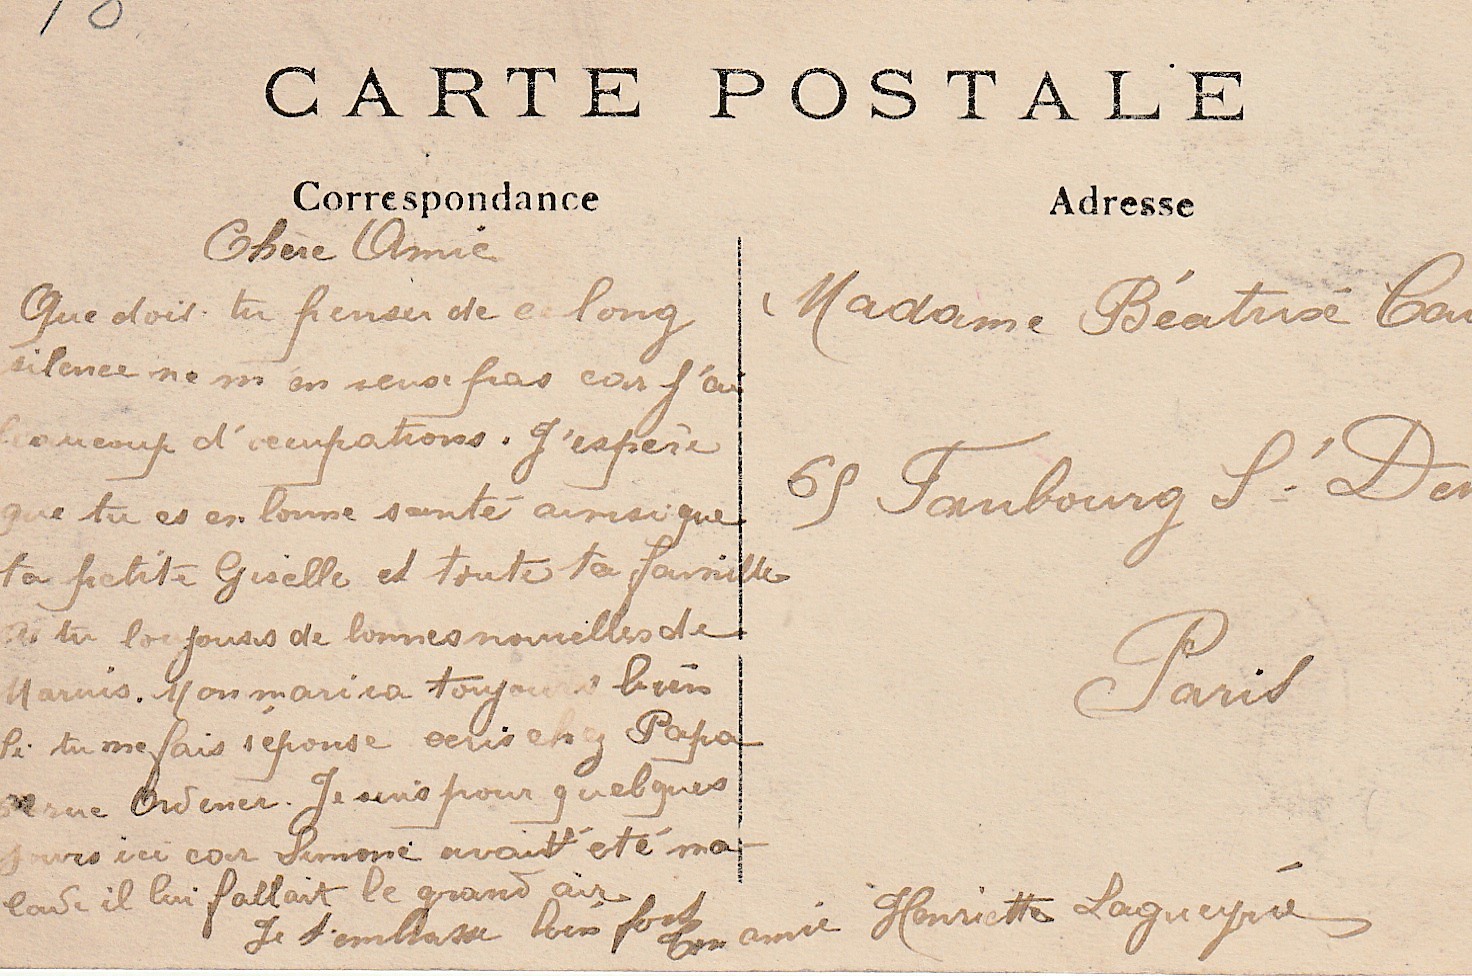 18
CARTE POSTALE
Correspondance
Chère Amie
Que dois tu penser de ce long
silence ne m'en veuse pas car j'ai
beaucoup d'occupations. J'espère
que tu es en bonne santé ainsi que
ta petite Giselle et toute ta famille
As tu toujours de bonnes nouvelles de
Marius. Mon mari va toujours bien
Si tu me fais réponse ecris chez Papa
rue Ordener. Je suis pour quelques
jours ici car Simone avait été ma-
lade il lui fallait le grand air
Je t'embrasse bien fort
Ton amie Henriette Lagueyrie
Adresse
Madame Béatrixe
65 Faubourg St Den
Paris